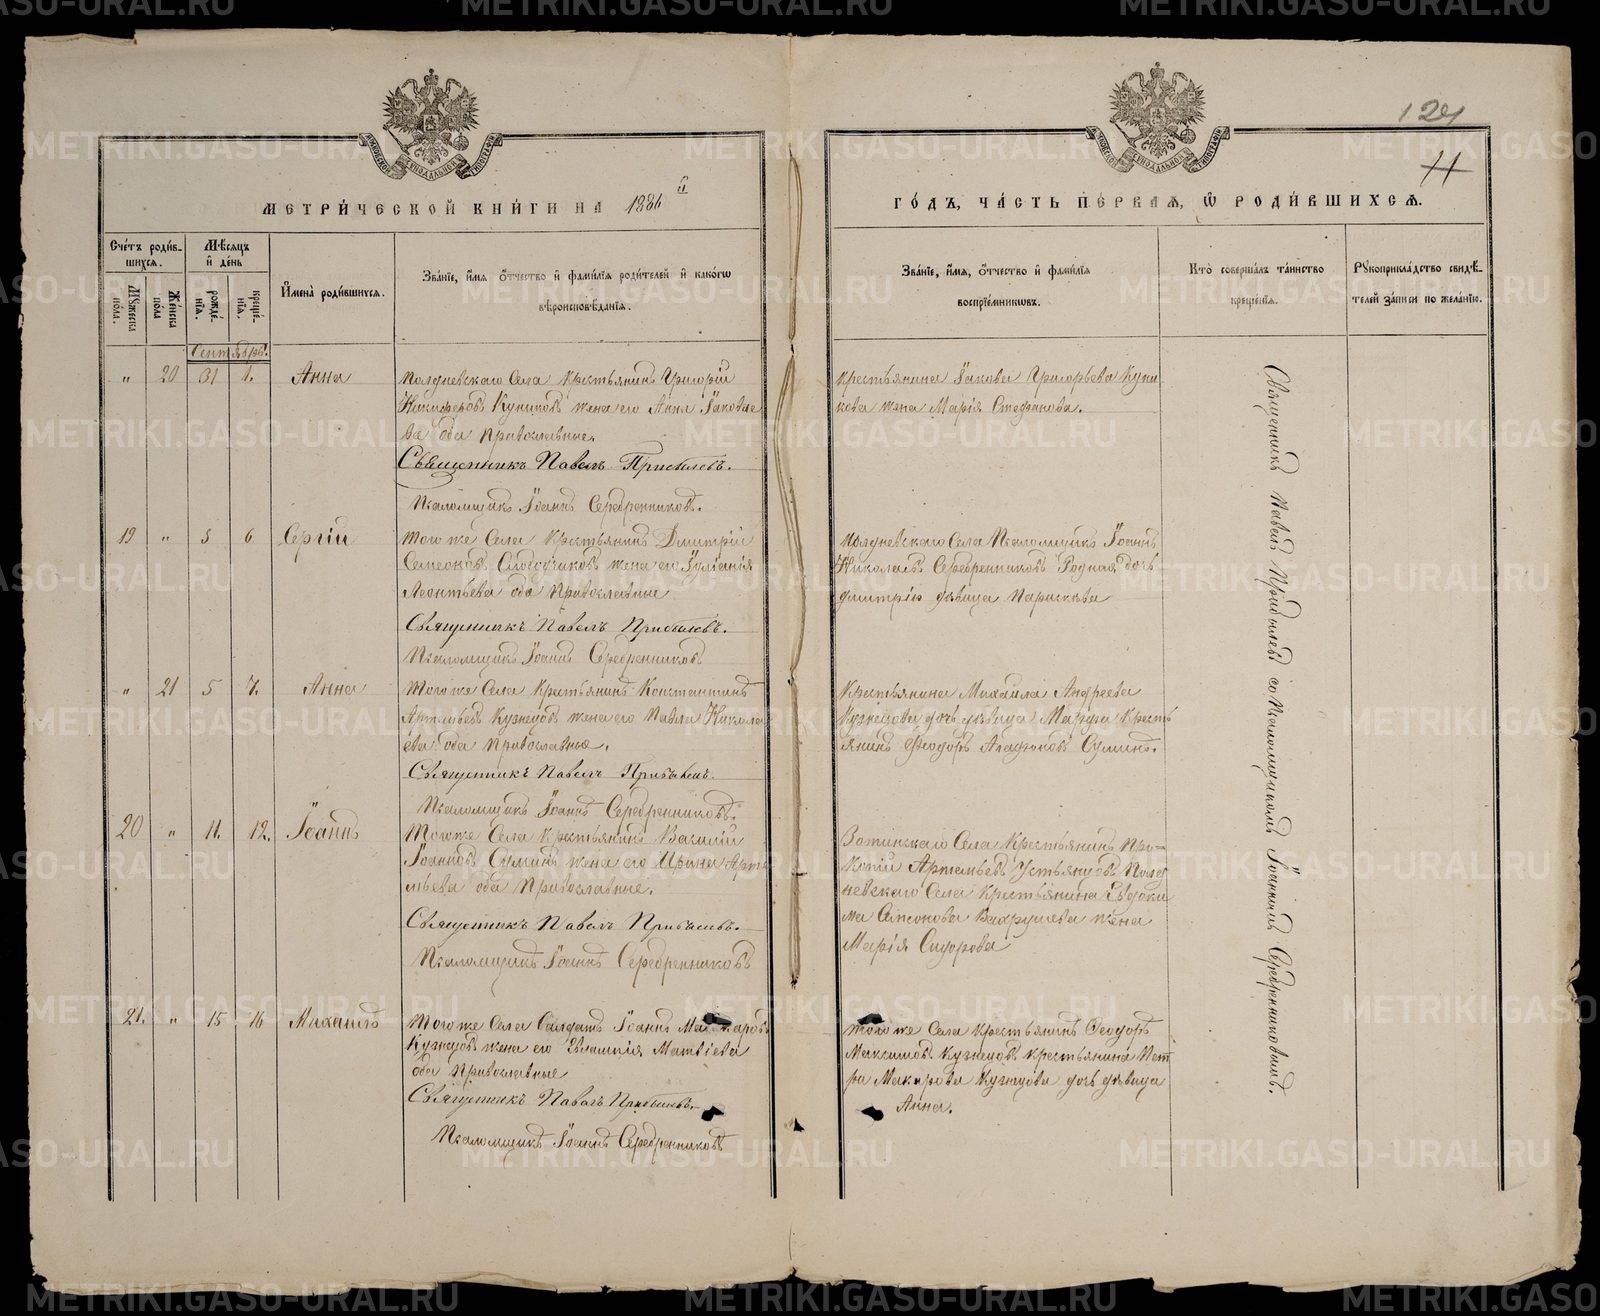 124
11
МЕТРИЧЕСКОЙ КНИГИ НА 1886й
ГОДЪ, ЧАСТЬ ПЕРВАЯ, Ѡ РОДИВШИХСЯ.
Счетъ родившихся.
Мужеска пола.
Женска пола
Мѣсяцъ и день
рожденія.
крещенія.
Имена родившихся.
Званіе, имя отчество и фамилія родителей и какогѡ
вѣроисповѣданія.
Званіе, имя, отчество и фамилія
воспріемникѡвъ.
Кто совершалъ таинство
крещенія.
Рукоприкладство свидѣ-
телей записи по желанію.
Сентябрь.
" 20 31 1. Анна
Полдневскаго Села Крестьянинъ Григорій
Никифоровъ Куниковъ жена его Анна Іаковле
ва оба Православные.
Священникъ Павелъ Прибылевъ.
Псаломщикъ Іоаннъ Серебренниковъ.
Крестьянина Іакова Григорьева Куни
кова жена Марія Стефанова.
19 " 5 6 Сергій
Того же Села Крестьянинъ Дмитрій
Семеоновъ жена его Іуліанія
Леонтьева оба Православные
Священникъ Павелъ Прибылевъ.
Псаломщикъ Іоаннъ Серебренниковъ
Полдневскаго Села Псаломщикъ Іоаннъ
Николаевъ Серебренниковъ Родная дочь
Дмитрія дѣвица Параскева
" 21 5 7. Анна
Того же Села Крестьянинъ Константинъ
Артемьевъ Кузнецовъ жена его Павла Никола
ева оба Православные.
Священникъ Павелъ Прибылевъ.
Псаломщикъ Іоаннъ Серебренниковъ.
Крестьянина Михаила Андреева
Кузнецова дочь дѣвица Марфа Кресть
янинъ Ѳеодоръ Агафоновъ Суминъ.
20 " 11. 12. Іоаннъ
Того же Села Крестьянинъ Василій
Іоанновъ Суминъ жена его Ирина Арте
мьева оба Православные.
Священникъ Павелъ Прибылевъ.
Псаломщикъ Іоаннъ Серебренниковъ
Воттинскаго Села Крестьянинъ Про-
копій Артемьевъ Устьянцовъ Полд
невскаго Села Крестьянина Евдоки
ма Симеонова Вахрушева жена
Марія Сидорова
21. " 15 16 Михаилъ
Того же Села Солдатъ Іоаннъ Макаровъ
Кузнецовъ жена его Евлампія Матвіева
оба Православные
Священникъ Павелъ Прибылевъ.
Псаломщикъ Іоаннъ Серебренниковъ
Того же Села Крестьянинъ Ѳеодоръ
Максимовъ Кузнецовъ крестьянина Пет
ра Макарова Кузнецова дочь дѣвица
Анна.
Священникъ Павелъ Прибылевъ со Псаломщикомъ Іоанномъ Серебренниковымъ.
METRIKI.GASO-URAL.RU